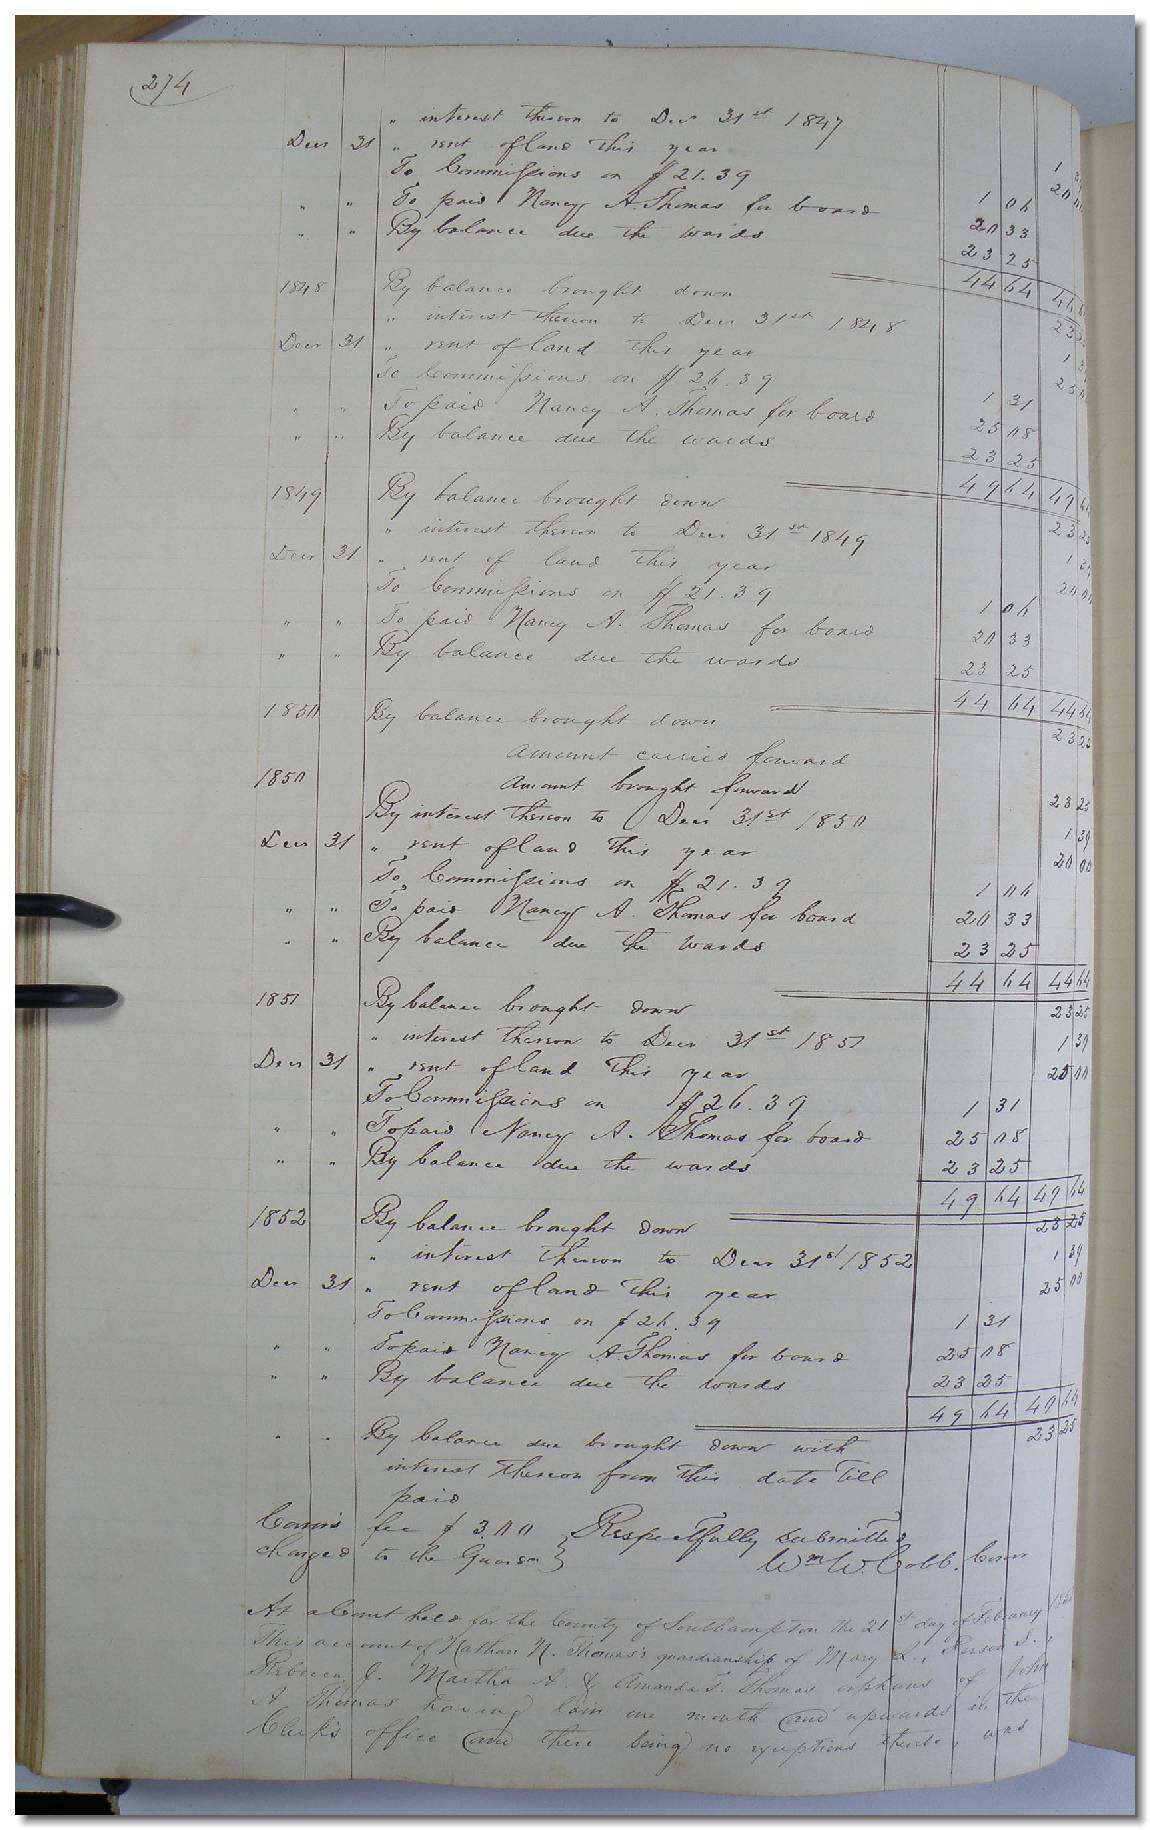 274
" interest thereon to Decr 31st 1847
Decr 31 " rent of land this year 1
To Commissions on $21.39 20
" " To paid Nancy A. Thomas for board 1 06
" " By balance due the wards 20 33
23 25
44 64 44
1848 By balance brought down 23
" interest thereon to Decr 31st 1848 1
Decr 31 " rent of land this year 25
To Commissions on $26.39 1 31
" " To paid Nancy A. Thomas for board 25 08
" " By balance due the wards 23 25
49 64 49
1849 By balance brought down 23 25
" interest thereon to Decr 31st 1849 1 39
Decr 31 " rent of land this year 20 00
To Commissions on $21.39 1 06
" " To paid Nancy A. Thomas for board 20 33
" " By balance due the wards 23 25
44 64 44 64
1850 By balance brought down 23 25
Amount carried forward
1850 Amount brought forward 23 25
By interest thereon to Decr 31st 1850 1 39
Decr 31 " rent of land this year 20 00
To Commissions on $21.39 1 06
" " To paid Nancy A. Thomas for board 20 33
" " By balance due the wards 23 25
44 64 44 64
1851 By balance brought down 23 25
" interest thereon to Decr 31st 1851 1 39
Decr 31 " rent of land this year 25 00
To Commissions on $26.39 1 31
" " To paid Nancy A. Thomas for board 25 08
" " By balance due the wards 23 25
49 64 49 64
1852 By balance brought down 23 25
" interest thereon to Decr 31st 1852 1 39
Decr 31 " rent of land this year 25 00
To Commissions on $26.39 1 31
" " To paid Nancy A Thomas for board 25 08
" " By balance due the wards 23 25
49 64 49 64
" " By balance due brought down with 23 25
interest thereon from this date till
paid
Comr's fee $3.00 } Respectfully submitted
charged to the Guardn } Wm W. Cobb. Comr
At a Court held for the County of Southampton the 21st day of February
This account of Nathan N. Thomas's guardianship of Mary L., S.,
Rebecca J. Martha A. & Amanda T. Thomas orphans of John
A Thomas having lain one month and upwards in the
Clerk's office and there being no exceptions thereto, was